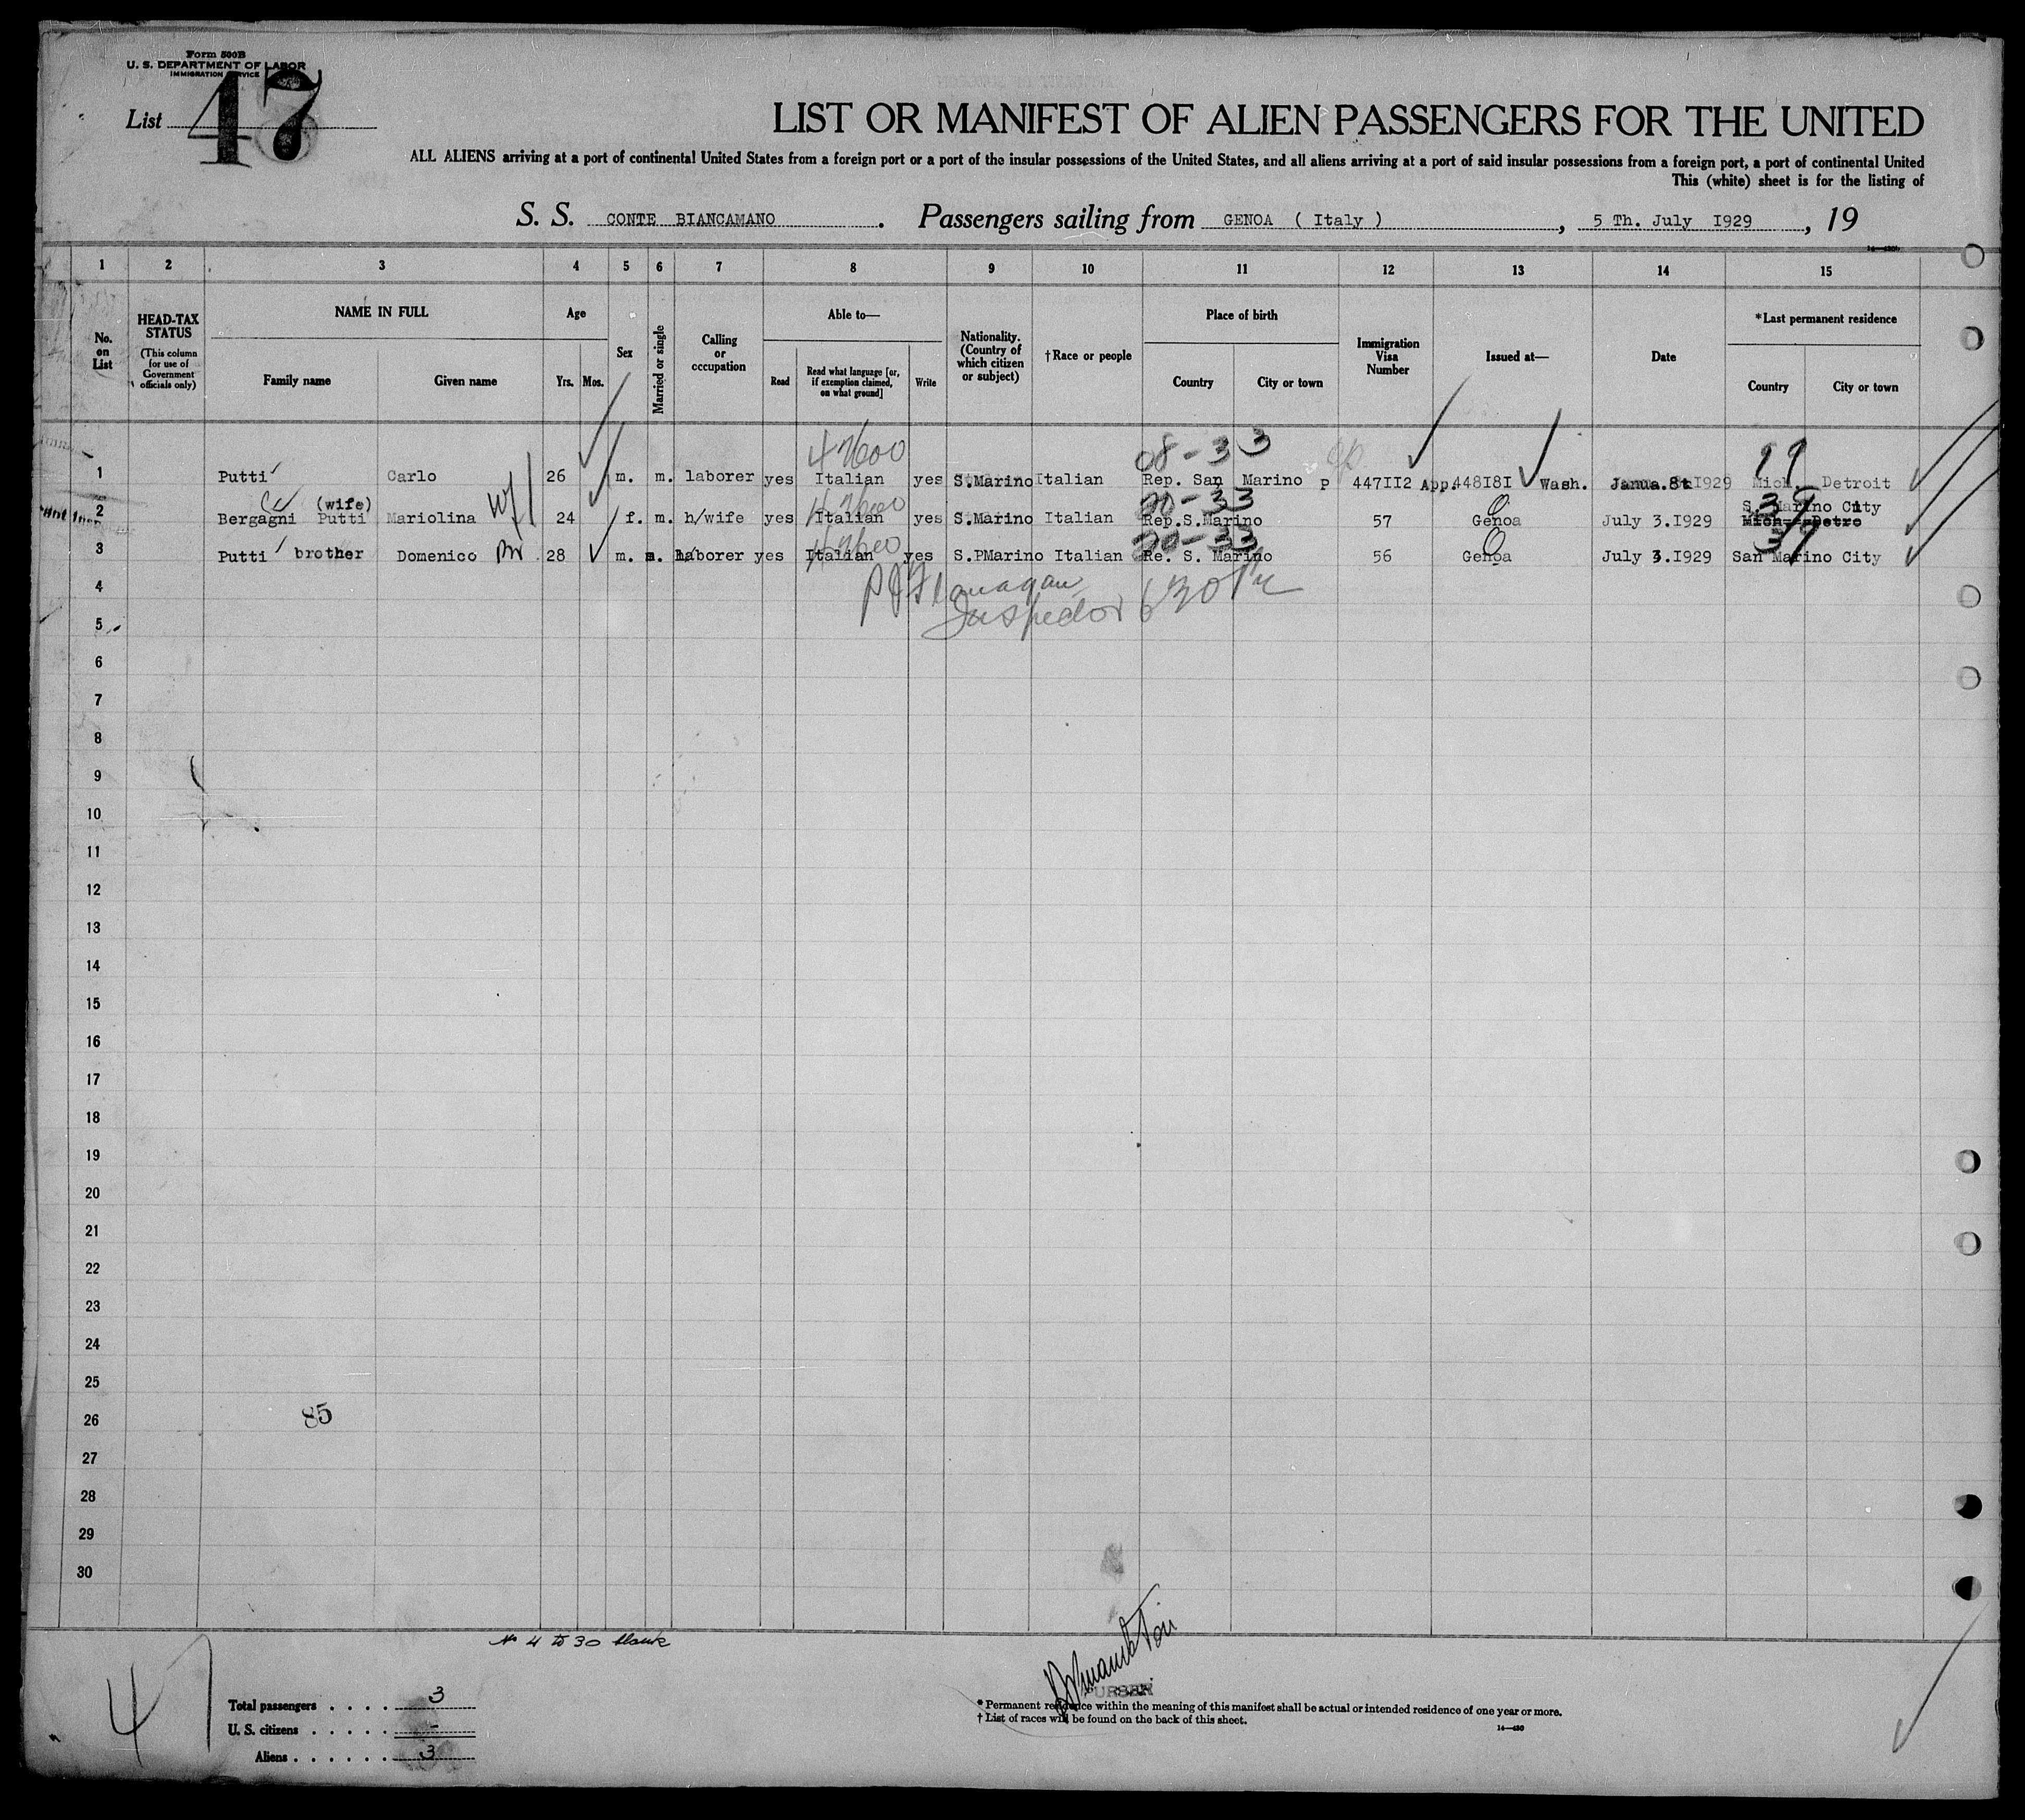 Form 500B
U. S. DEPARTMENT OF LABOR
IMMIGRATION SERVICE
List 47
LIST OR MANIFEST OF ALIEN PASSENGERS FOR THE UNITED
ALL ALIENS arriving at a port of continental United States from a foreign port or a port of the insular possessions of the United States, and all aliens arriving at a port of said insular possessions from a foreign port, a port of continental United
This (white) sheet is for the listing of
S. S. CONTE BIANCAMANO. Passengers sailing from GENOA ( Italy ), 5 Th. July I929, 19
1 2 3 4 5 6 7 8 9 10 11 12 13 14 15
No. on List
HEAD-TAX STATUS (This column for use of Government officials only)
NAME IN FULL
Family name Given name
Age
Yrs. Mos.
Sex
Married or single
Calling or occupation
Able to—
Read Read what language [or, if exemption claimed, on what ground] Write
Nationality. (Country of which citizen or subject)
†Race or people
Place of birth
Country City or town
Immigration Visa Number
Issued at—
Date
*Last permanent residence
Country City or town
42600 08-33 99
1 Putti Carlo 26 m. m. laborer yes Italian yes S.Marino Italian Rep. San Marino P 447II2 App.448I8I Wash. Janua.8t I929 Mich. Detroit
(wife) 42600 20-33 39 S. Marino City
2 Bergagni Putti Mariolina Wf 24 f. m. h/wife yes Italian yes S.Marino Italian Rep.S.Marino 57 Genoa July 3.I929 Mich- Detro
42600 20-33 39
3 Putti brother Domenico Br 28 m. m. laborer yes Italian yes S.PMarino Italian Re. S. Marino 56 Genoa July 3.I929 San Marino City
4 P J Flanagan
5 Inspector 630
6
7
8
9
10
11
12
13
14
15
16
17
18
19
20
21
22
23
24
25
26 85
27
28
29
30
No 4 to 30 blank
47
Total passengers . . . . . 3
U. S. citizens . . . . . -
Aliens . . . . . . 3
PURSER
* Permanent residence within the meaning of this manifest shall be actual or intended residence of one year or more.
† List of races will be found on the back of this sheet.
14—430